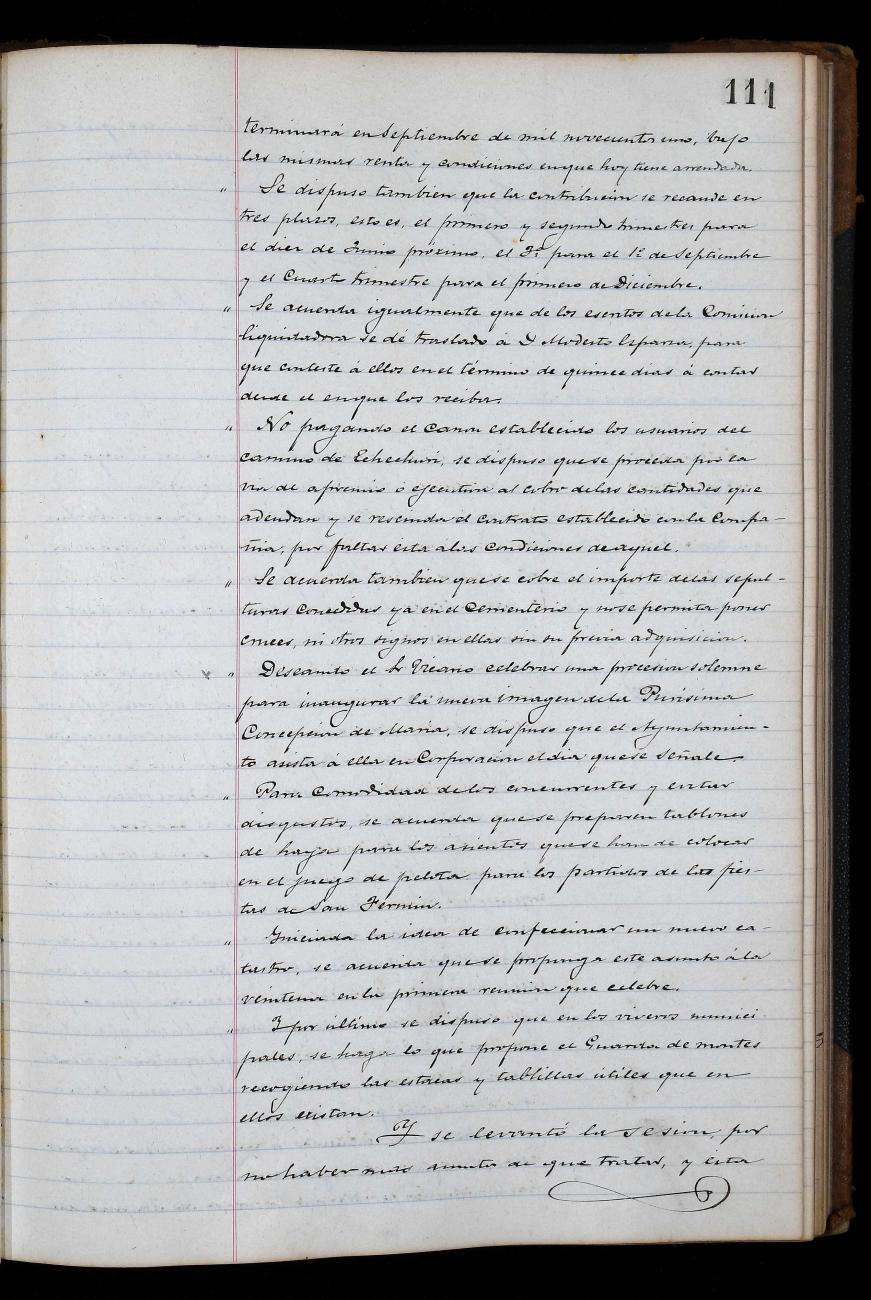 111
terminará en Septiembre de mil novecientos uno, bajo
las mismas renta y condiciones en que hoy tiene arrendada.
" Se dispuso tambien que la contribucion se recaude en
tres plazos, esto es, el primero y segundo trimestres para
el diez de Junio próximo, el 3º para el 1º de Septiembre
y el Cuarto trimestre para el primero de Diciembre.
" Se acuerda igualmente que de los escritos de la Comision
liquidadora se dé traslado á D Modesto Esparza, para
que conteste á ellos en el término de quince dias á contar
desde el en que los reciba.
" No pagando el Canon establecido los usuarios del
camino de Echechuri, se dispuso que se proceda por la
via de apremio ó ejecutiva al cobro de las cantidades que
adeudan y se rescinda el contrato establecido con la Compa-
ñia, por faltar esta a las condiciones de aquel.
" Se acuerda tambien que se cobre el importe de las sepul-
turas concedidas ya en el Cementerio y no se permita poner
cruces, ni otros signos en ellas sin su previa adquisicion.
" Deseando el Sr Vicario celebrar una procesion solemne
para inaugurar la nueva imagen de la Purísima
Concepcion de Maria, se dispuso que el Ayuntamien-
to asista á ella en Corporacion el dia que se señale.
" Para comodidad de los concurrentes y evitar
disgustos, se acuerda que se preparen tablones
de haya para los asientos que se han de colocar
en el juego de pelota para los partidos de las fies-
tas de San Fermin.
" Iniciada la idea de confeccionar un nuevo ca-
tastro, se acuerda que se proponga este asunto á la
veintena en la primera reunion que celebre.
" I por último se dispuso que en los viveros munici
pales, se haga lo que propone el Guarda de montes
recogiendo las estacas y tablillas útiles que en
ellos existan.
Y se levantó la sesion, por
no haber mas asuntos de que tratar, y esta